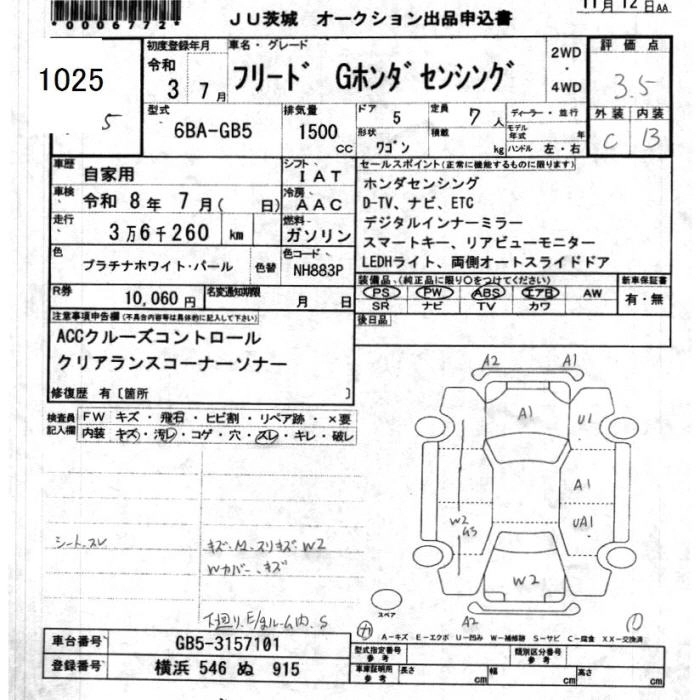 *0006772*
11月12日AA
JU茨城 オークション出品申込書
1025
5
初度登録年月
令和 3年 7月
車名・グレード
フリード Gホンダセンシング
2WD・4WD
評価点
3.5
外装 内装
C B
型式
6BA-GB5
排気量
1500cc
ドア
5
定員
7人
形状
ワゴン
積載
kg
ディーラー・並行
モデル年式 年
ハンドル 左・右
車歴
自家用
シフト
IAT
車検
令和 8年 7月( 日)
冷房
AAC
走行
3万6千260km
燃料
ガソリン
色
プラチナホワイト・パール
色替
色コード
NH883P
R券
10,060円
名変通知期限
月 日
セールスポイント(正常に機能するものに限ります)
ホンダセンシング
D-TV、ナビ、ETC
デジタルインナーミラー
スマートキー、リアビューモニター
LEDHライト、両側オートスライドドア
装備品(純正品に限り○をつけてください)
PS PW ABS エアB AW
SR ナビ TV カワ
新車保証書
有・無
後日品
注意事項申告欄(不具合内容等は具体的に記入して下さい)
ACCクルーズコントロール
クリアランスコーナーソナー
修復歴 有〔箇所 〕
検査員記入欄
FW キズ・飛石・ヒビ割・リペア跡・×要
内装 キズ・汚レ・コゲ・穴・スレ・キレ・破レ
シート.スレ
キズ・M・スリキズ W2
Wカバー.キズ
下廻り.E/gルーム内.S
A2 A1
A1
U1
A1
UA1
W2
W2
A2
スペア
A-キズ E-エクボ U-凹み W-補修跡 S-サビ C-腐食 XX-交換済
車台番号
GB5-3157101
登録番号
横浜 546 ぬ 915
型式指定番号 参考
類別区分番号 参考
車庫証明用 参考
長さ cm
幅 cm
高さ cm